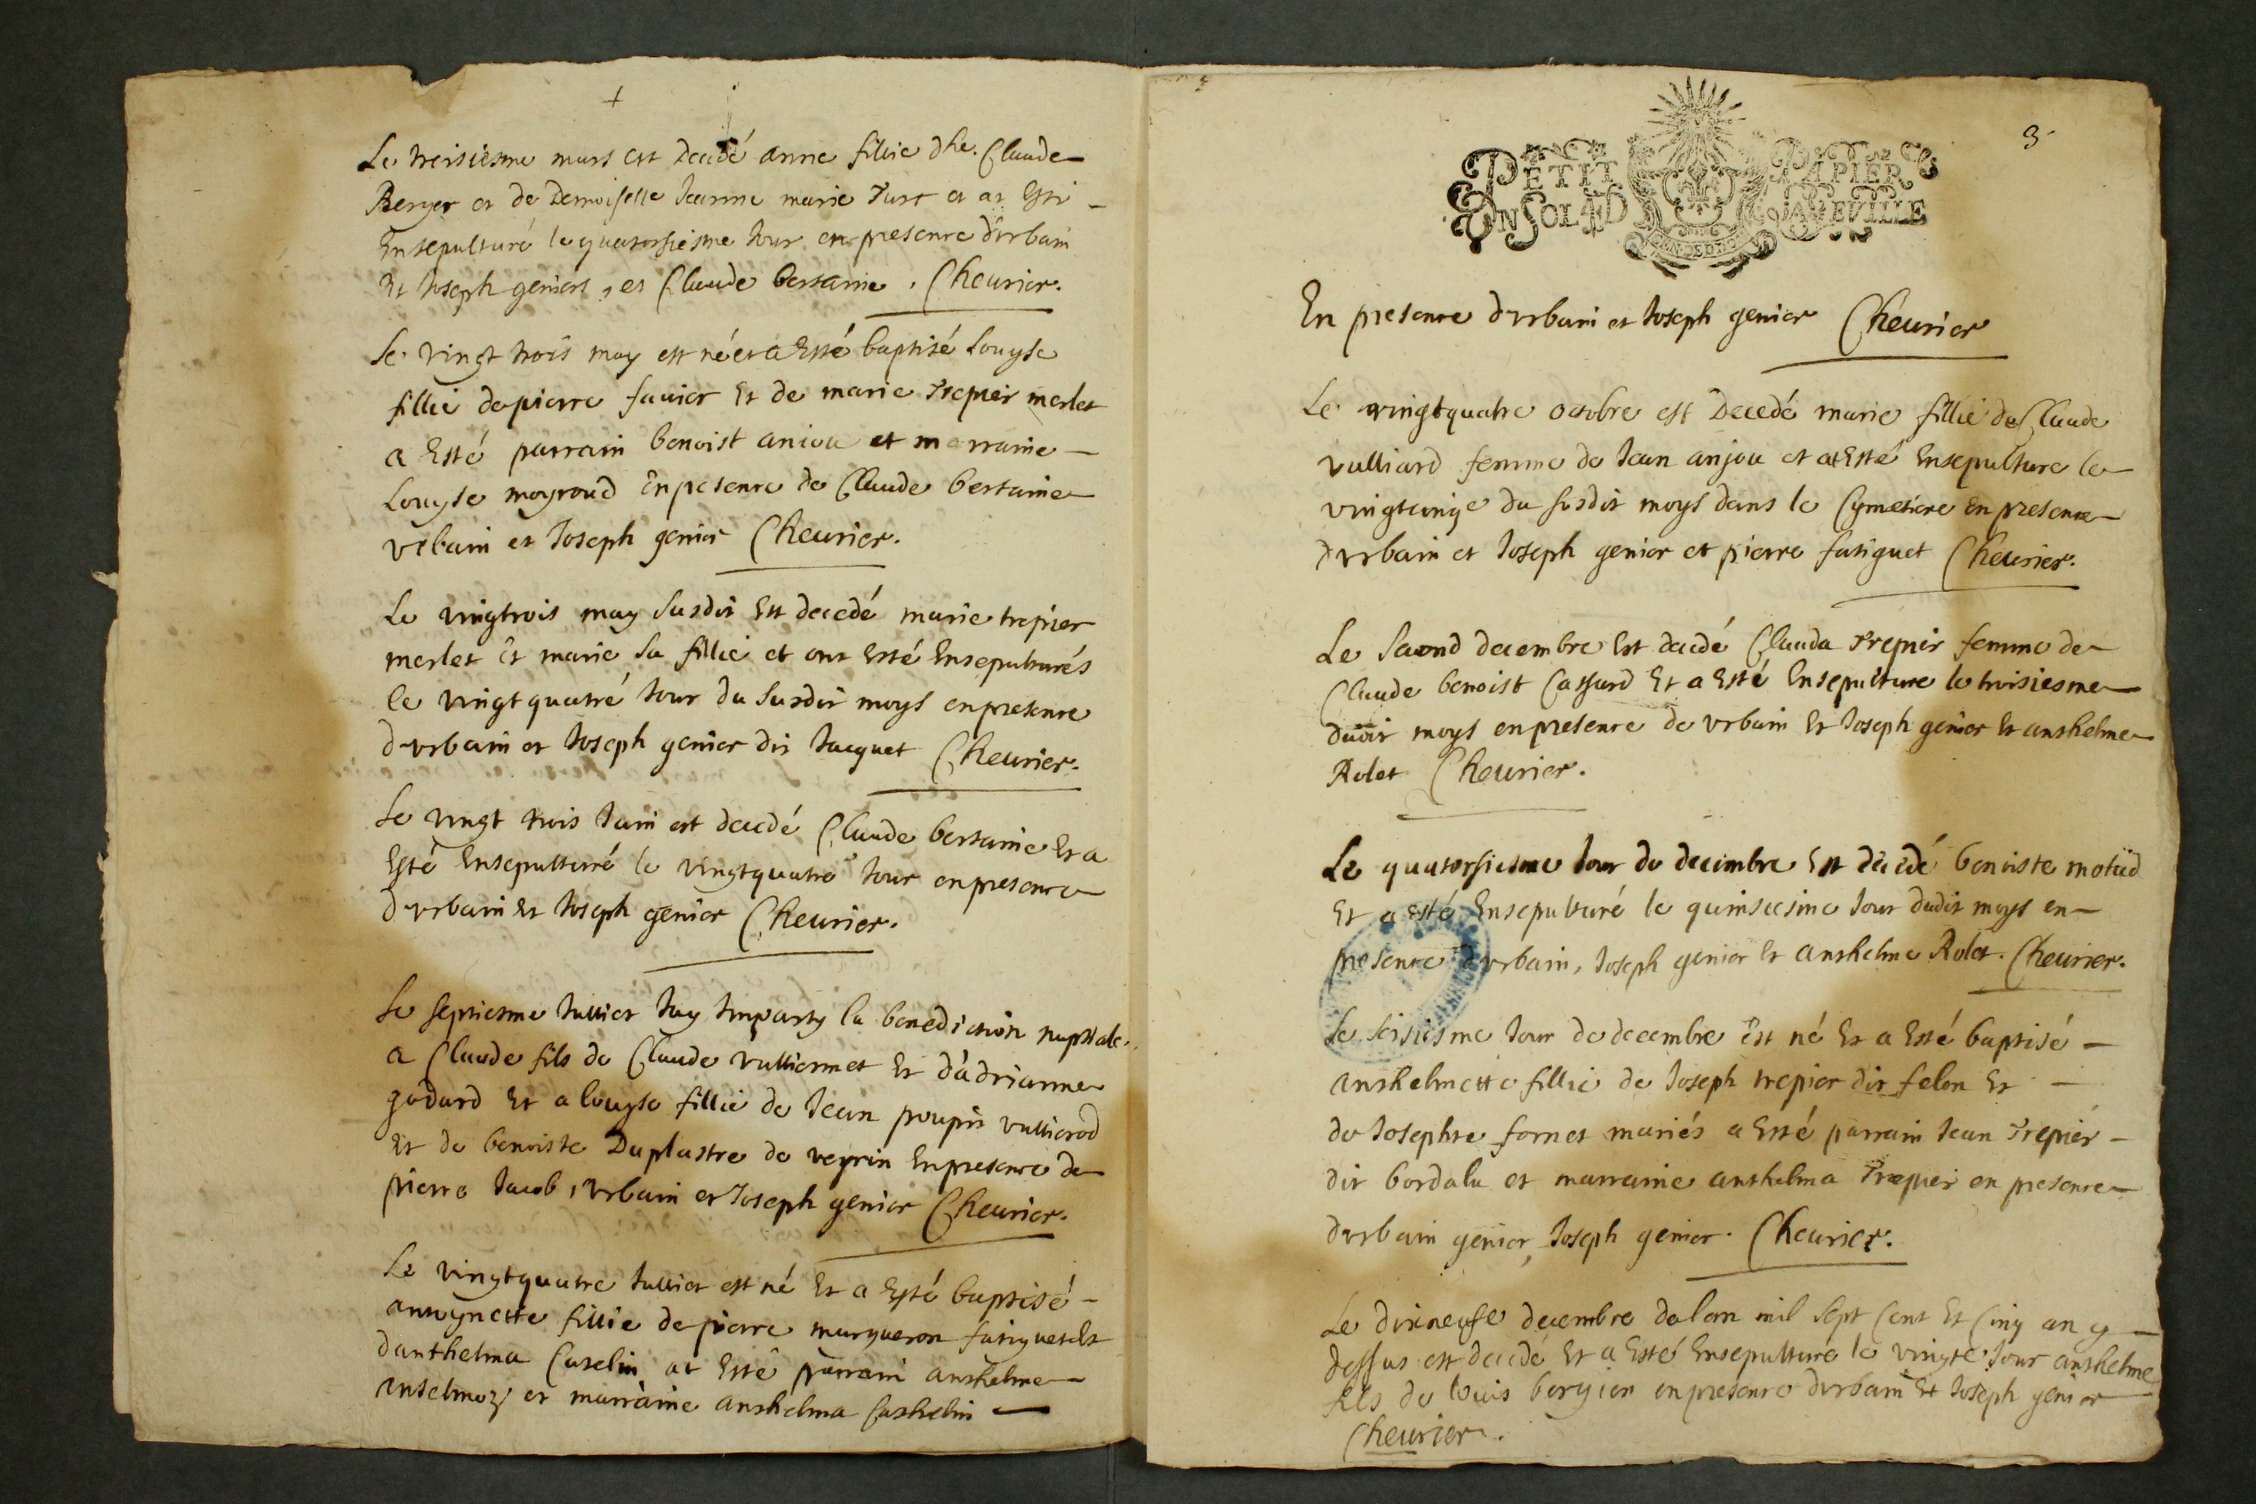 Le treisiesme mars est decedé anne fillie dhe. Claude
Berger et de Demoiselle Jeanne marie Turc et at Esté
Ensepulturé le quatorsiesme Jour en presence d'urbain
Et Joseph geniers, et Claude bertanie. Cheurier.
Le vingt trois may est né et a Esté baptisé Louyse
fillie de pierre fauier Et de marie Trepier merlet
a Esté parrain benoist aniou et marraine
Louyse moyroud En presence de Claude bertanie
vrbain et Joseph genier Cheurier.
Le vingtrois may Susdit Est decedé marie trepier
merlet Et marie sa fillie et ont Esté Ensepulturés
le vingt quatré Jour du Susdit moys en presence
d'vrbain et Joseph genier dit Jaquet Cheurier.
Le vingt trois Juin est decedé Claude bertanie Et a
Esté Ensepulturé le vingtquatre Jour en presence
d'vrbain Et Joseph genier Cheurier.
Le septiesme Julliet Jay Imparty la benediction nuptiale
a Claude fils de Claude vulliermet Et d'adrianne
godard Et a louyse fillie de Jean poupin vullierod
Et de benoiste Duplastre de veyrin En presence de
pierre Jacob, vrbain et Joseph genier Cheurier.
Le vingtquatre Julliet est né Et a Esté baptisé
antoynette fillie de pierre marqueron fatiguet Et
danthelma Caselin at Esté parrain anthelme
anselmoz et marraine anthelma Cathelin
3
PETIT PAPIER
UN SOL 4 D LA FEVILLE
En presence d'vrbain et Joseph genier Cheurier
Le vingtquatre octobre est Decedé marie fillie de Claude
vulliard femme de Jean anjou et at Esté Ensepulture le
vingtcinqe du susdit moys dans le Cymetiere En presence
d'vrbain et Joseph genier et pierre fatiguet Cheurier.
Le Second decembre Est decedé Clauda Trepier femme de
Claude benoist Cassard Et a Esté Ensepulture le troisiesme
dudit moys en presence de vrbain Et Joseph genier Et anthelme
Rolet Cheurier.
Le quatorsiesme Jour de decembre Est decedé benoiste motud
Et a Esté Ensepulturé le quinsiesme Jour dudit moys en
presence d'vrbain, Joseph genier Et anthelme Rolet. Cheurier.
Le seisiesme Jour de decembre Est né Et a Esté baptisé
anthelmette fillie de Joseph trepier dit felon Et
de Josephte fornet mariés a Esté parrain Jean Trepier
dit bordalu et marraine anthelma Trepier en presence
d'vrbain genier, Joseph genier. Cheurier.
Le dixneufe decembre de lan mil sept Cent Et Cinq an cy
dessus est decedé Et a Esté Ensepulture le vingte Jour anthelme
fils de louis bergier en presence d'vrbain Et Joseph genier
Cheurier.